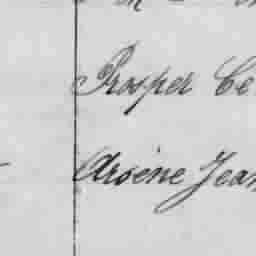 Prosper Ce
Arsène Jean